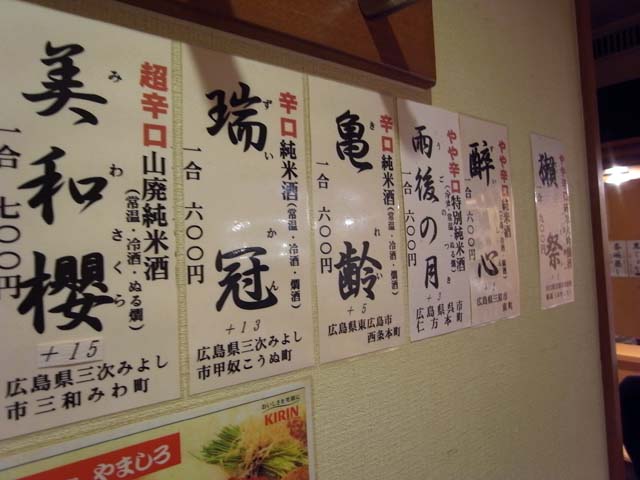 超辛口 山廃純米酒
(常温・冷酒・ぬる燗)
美和櫻
みわさくら
一合 七〇〇円
+15
広島県三次みよし
市三和みわ町
辛口 純米酒
(常温・冷酒・燗酒)
瑞冠
ずいかん
一合 六〇〇円
+13
広島県三次みよし
市甲奴こうぬ町
辛口 純米酒
(常温・冷酒・燗酒)
亀齢
きれい
一合 六〇〇円
+5
広島県東広島市
西条本町
やや辛口 特別純米酒
雨後の月
うごのつき
一合 六〇〇円
+3
広島県呉市
仁方本町
やや辛口 純米酒
醉心
すいしん
一合 六〇〇円
広島県三原市
獺祭
おいしさを笑顔に
KIRIN
やましろ